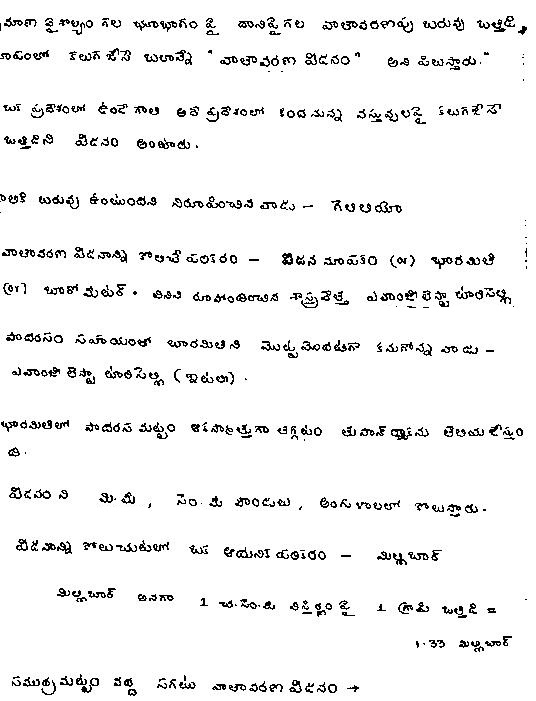 వైశాల్యం గల భూభాగం పై దానిపై గల వాతావరణపు బరువు ఒత్తిడి,
రూపంలో కలుగజేసే బలాన్నే "వాతావరణ పీడనం" అని పిలుస్తారు."
ఒక ప్రదేశంలో ఉండే గాలి అదే ప్రదేశంలో కల వస్తువులపై కలుగజేసే
ఒత్తిడిని పీడనం అంటారు.
బరువు ఉంటుందని నిరూపించిన వాడు - గెలీలియో
వాతావరణ పీడనాన్ని కొలిచే పరికరం - పీడన మాపకం (or) భారమితి
(or) బారోమీటర్. దీనిని రూపొందించిన శాస్త్రవేత్త ఎవాంజిలిస్టా టారిసెల్లి
పాదరసం సహాయంతో భారమితిని మొట్టమొదటగా కనుగొన్న వాడు -
ఎవాంజిలిస్టా టారిసెల్లి (ఇటలీ).
భారమితిలో పాదరస మట్టం అకస్మాత్తుగా తగ్గటం తుఫాన్ రాకను తెలియజేస్తుం
ది.
పీడనం ని మి.మీ, సెం.మీ పౌండులు, అంగుళాలలో కొలుస్తారు.
పీడనాన్ని కొలుచుటలో ఒక ఆధునిక పరికరం - మిల్లీబార్
మిల్లీబార్ అనగా 1 చ.సెం.మీ విస్తీర్ణం పై 1 గ్రామ్ ఒత్తిడి =
1.33 మిల్లీబార్
సముద్ర మట్టం వద్ద సగటు వాతావరణ పీడనం →